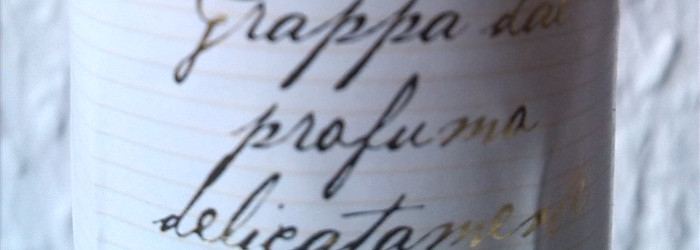 grappa dal
profumo
delicatamente